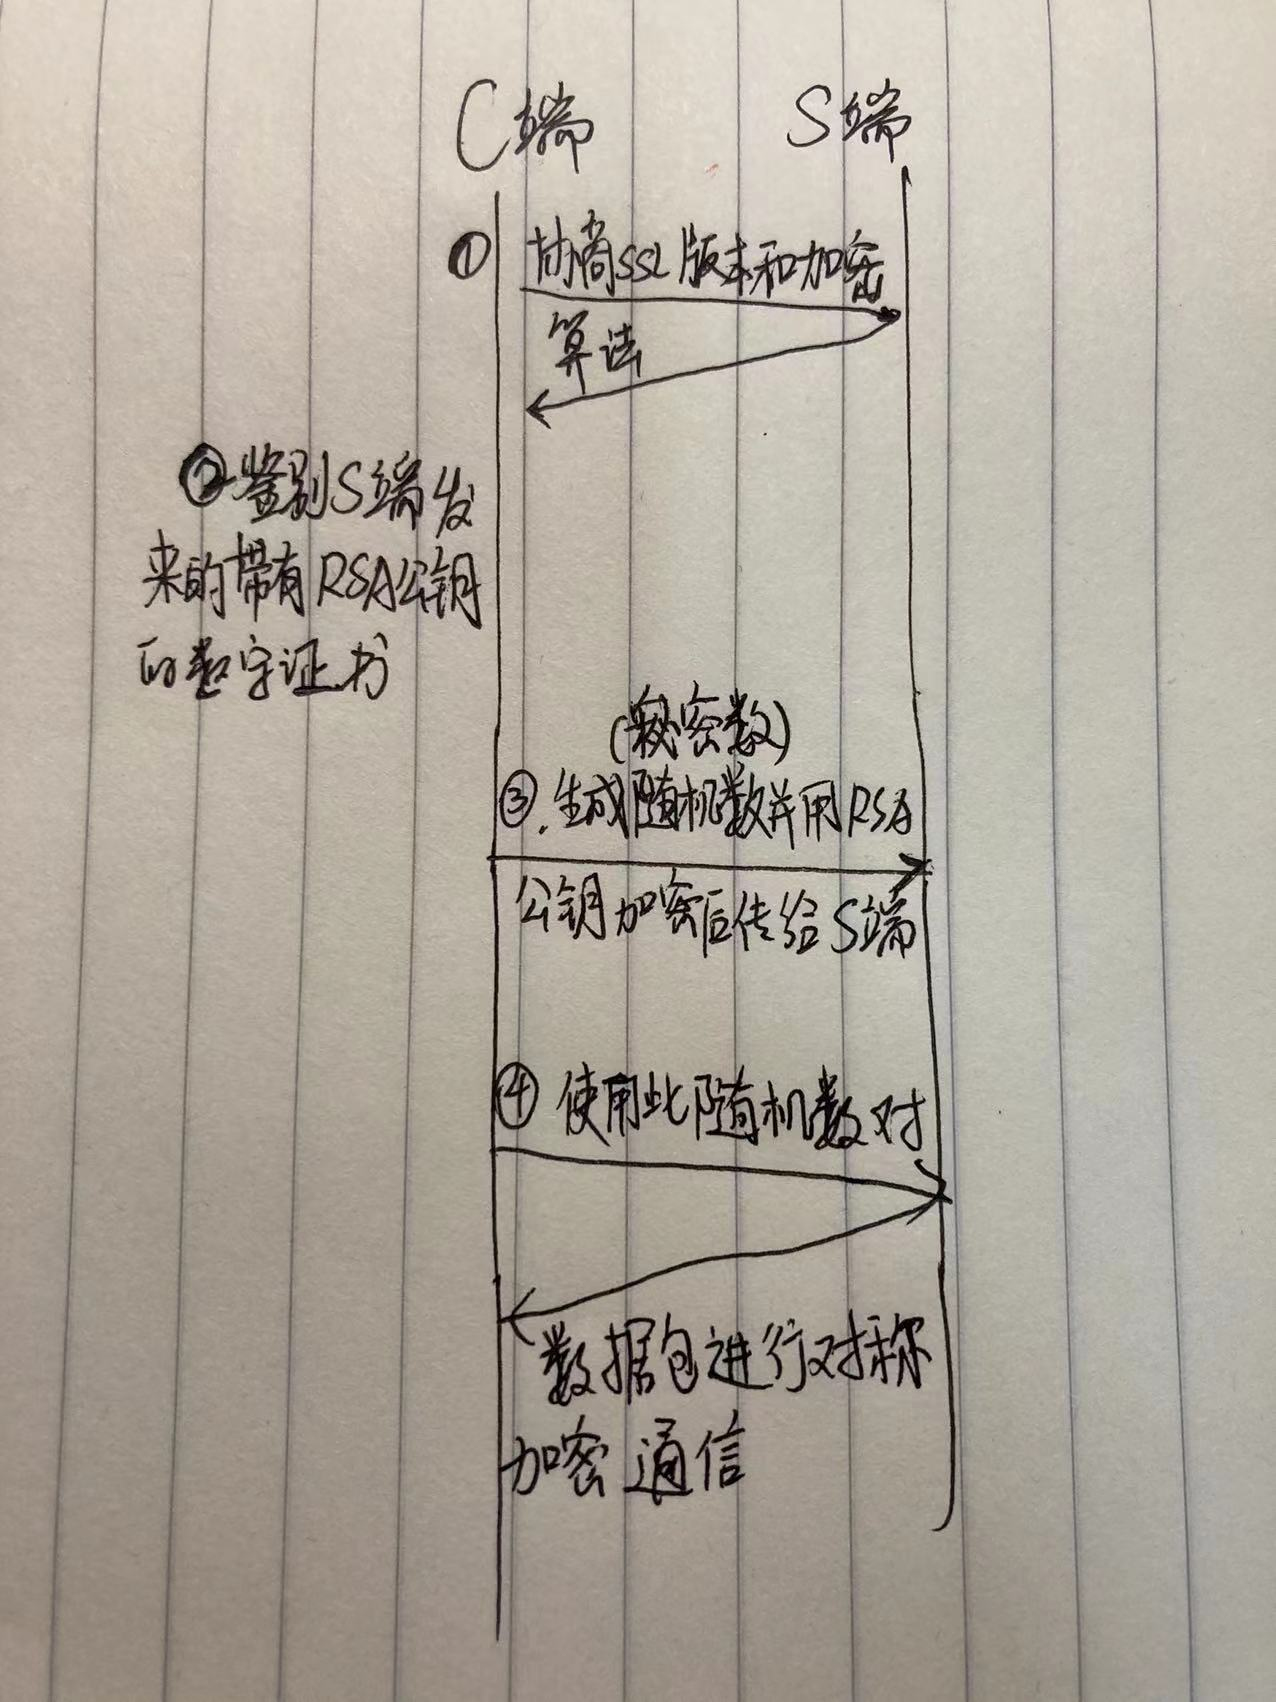 C端 S端
① 协商SSL版本和加密
算法
②鉴别S端发
来的带有RSA公钥
的数字证书
(秘密数)
③.生成随机数并用RSA
公钥加密后传给S端
④ 使用此随机数对
数据包进行对称
加密通信